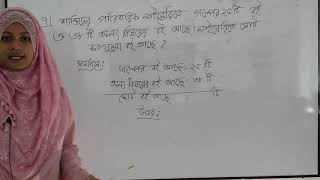 ৭। শান্তিদের পারিবারিক লাইব্রেরিতে গল্পের ২৫টি বই
ও ৩৮ টি অন্যান্য বিষয়ের বই আছে। লাইব্রেরিতে মোট
কতগুলো বই আছে?
সমাধান: গল্পের বই আছে= ২৫ টি
অন্য বিষয়ের বই আছে= ৩৮ টি
মোট বই আছে = টি
উত্তর: